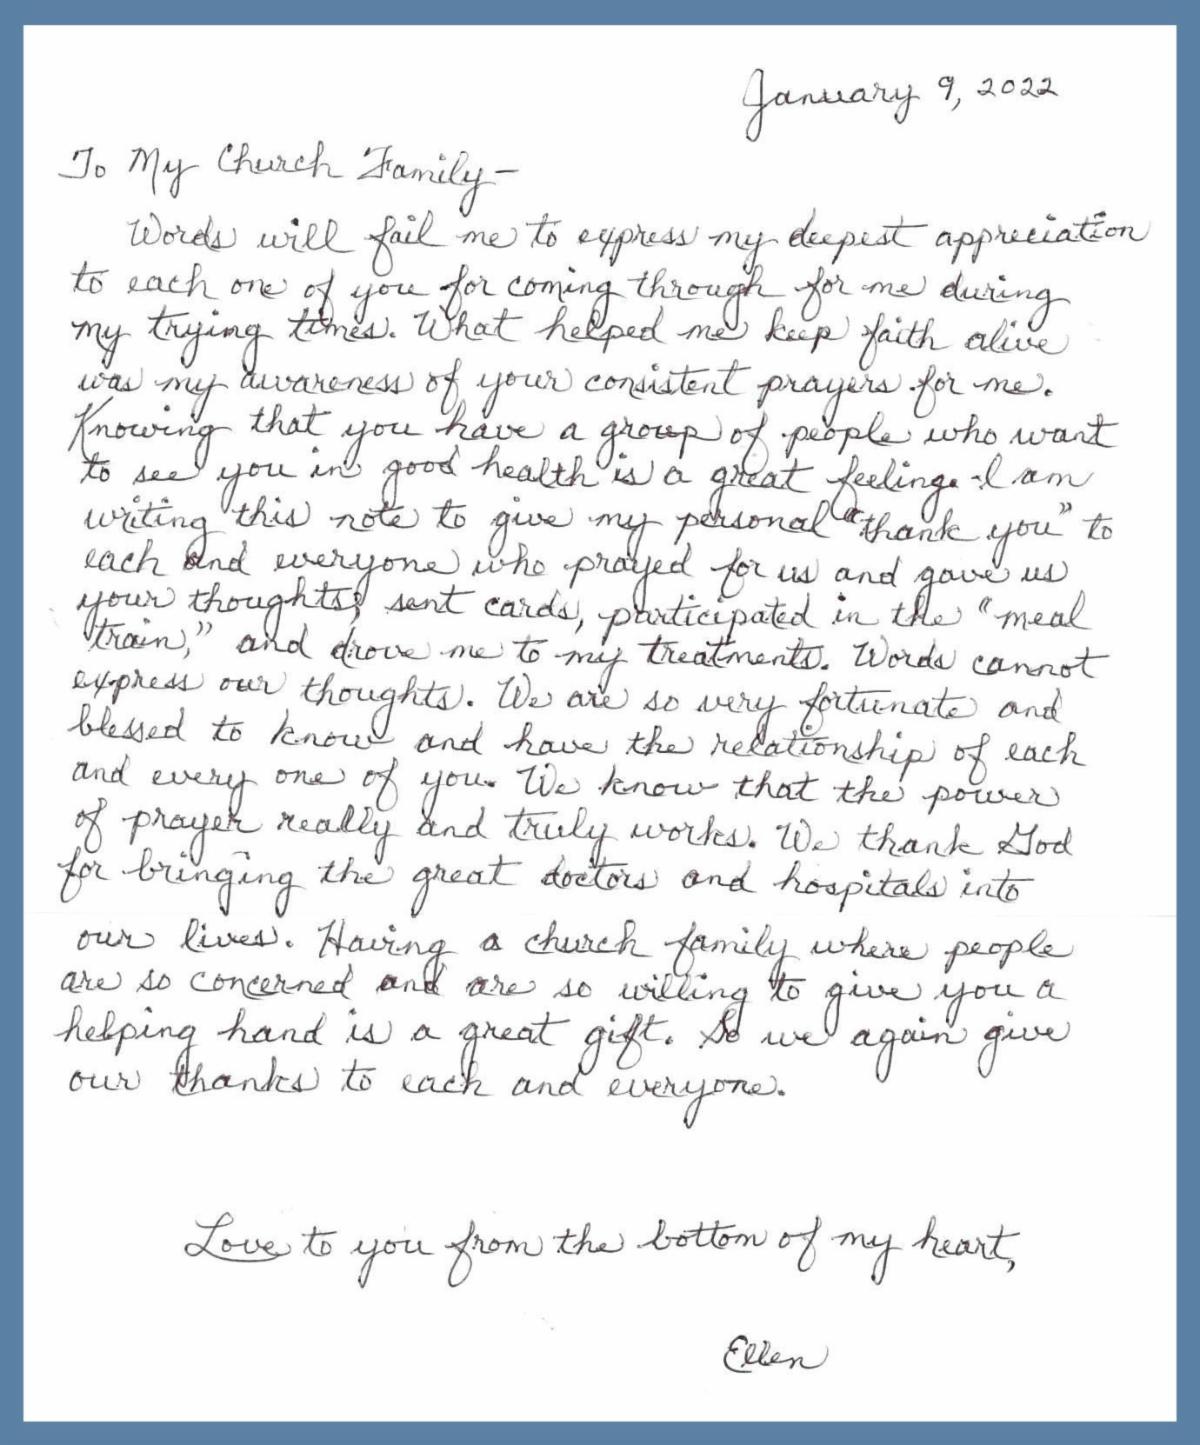 January 9, 2022
To My Church Family-
Words will fail me to express my deepest appreciation
to each one of you for coming through for me during
my trying times. What helped me keep faith alive
was my awareness of your consistent prayers for me.
Knowing that you have a group of people who want
to see you in good health is a great feeling. I am
writing this note to give my personal "thank you" to
each and everyone who prayed for us and gave us
your thoughts, sent cards, participated in the "meal
train," and drove me to my treatments. Words cannot
express our thoughts. We are so very fortunate and
blessed to know and have the relationship of each
and every one of you. We know that the power
of prayer really and truly works. We thank God
for bringing the great doctors and hospitals into
our lives. Having a church family where people
are so concerned and are so willing to give you a
helping hand is a great gift. So we again give
our thanks to each and everyone.
Love to you from the bottom of my heart,
Ellen